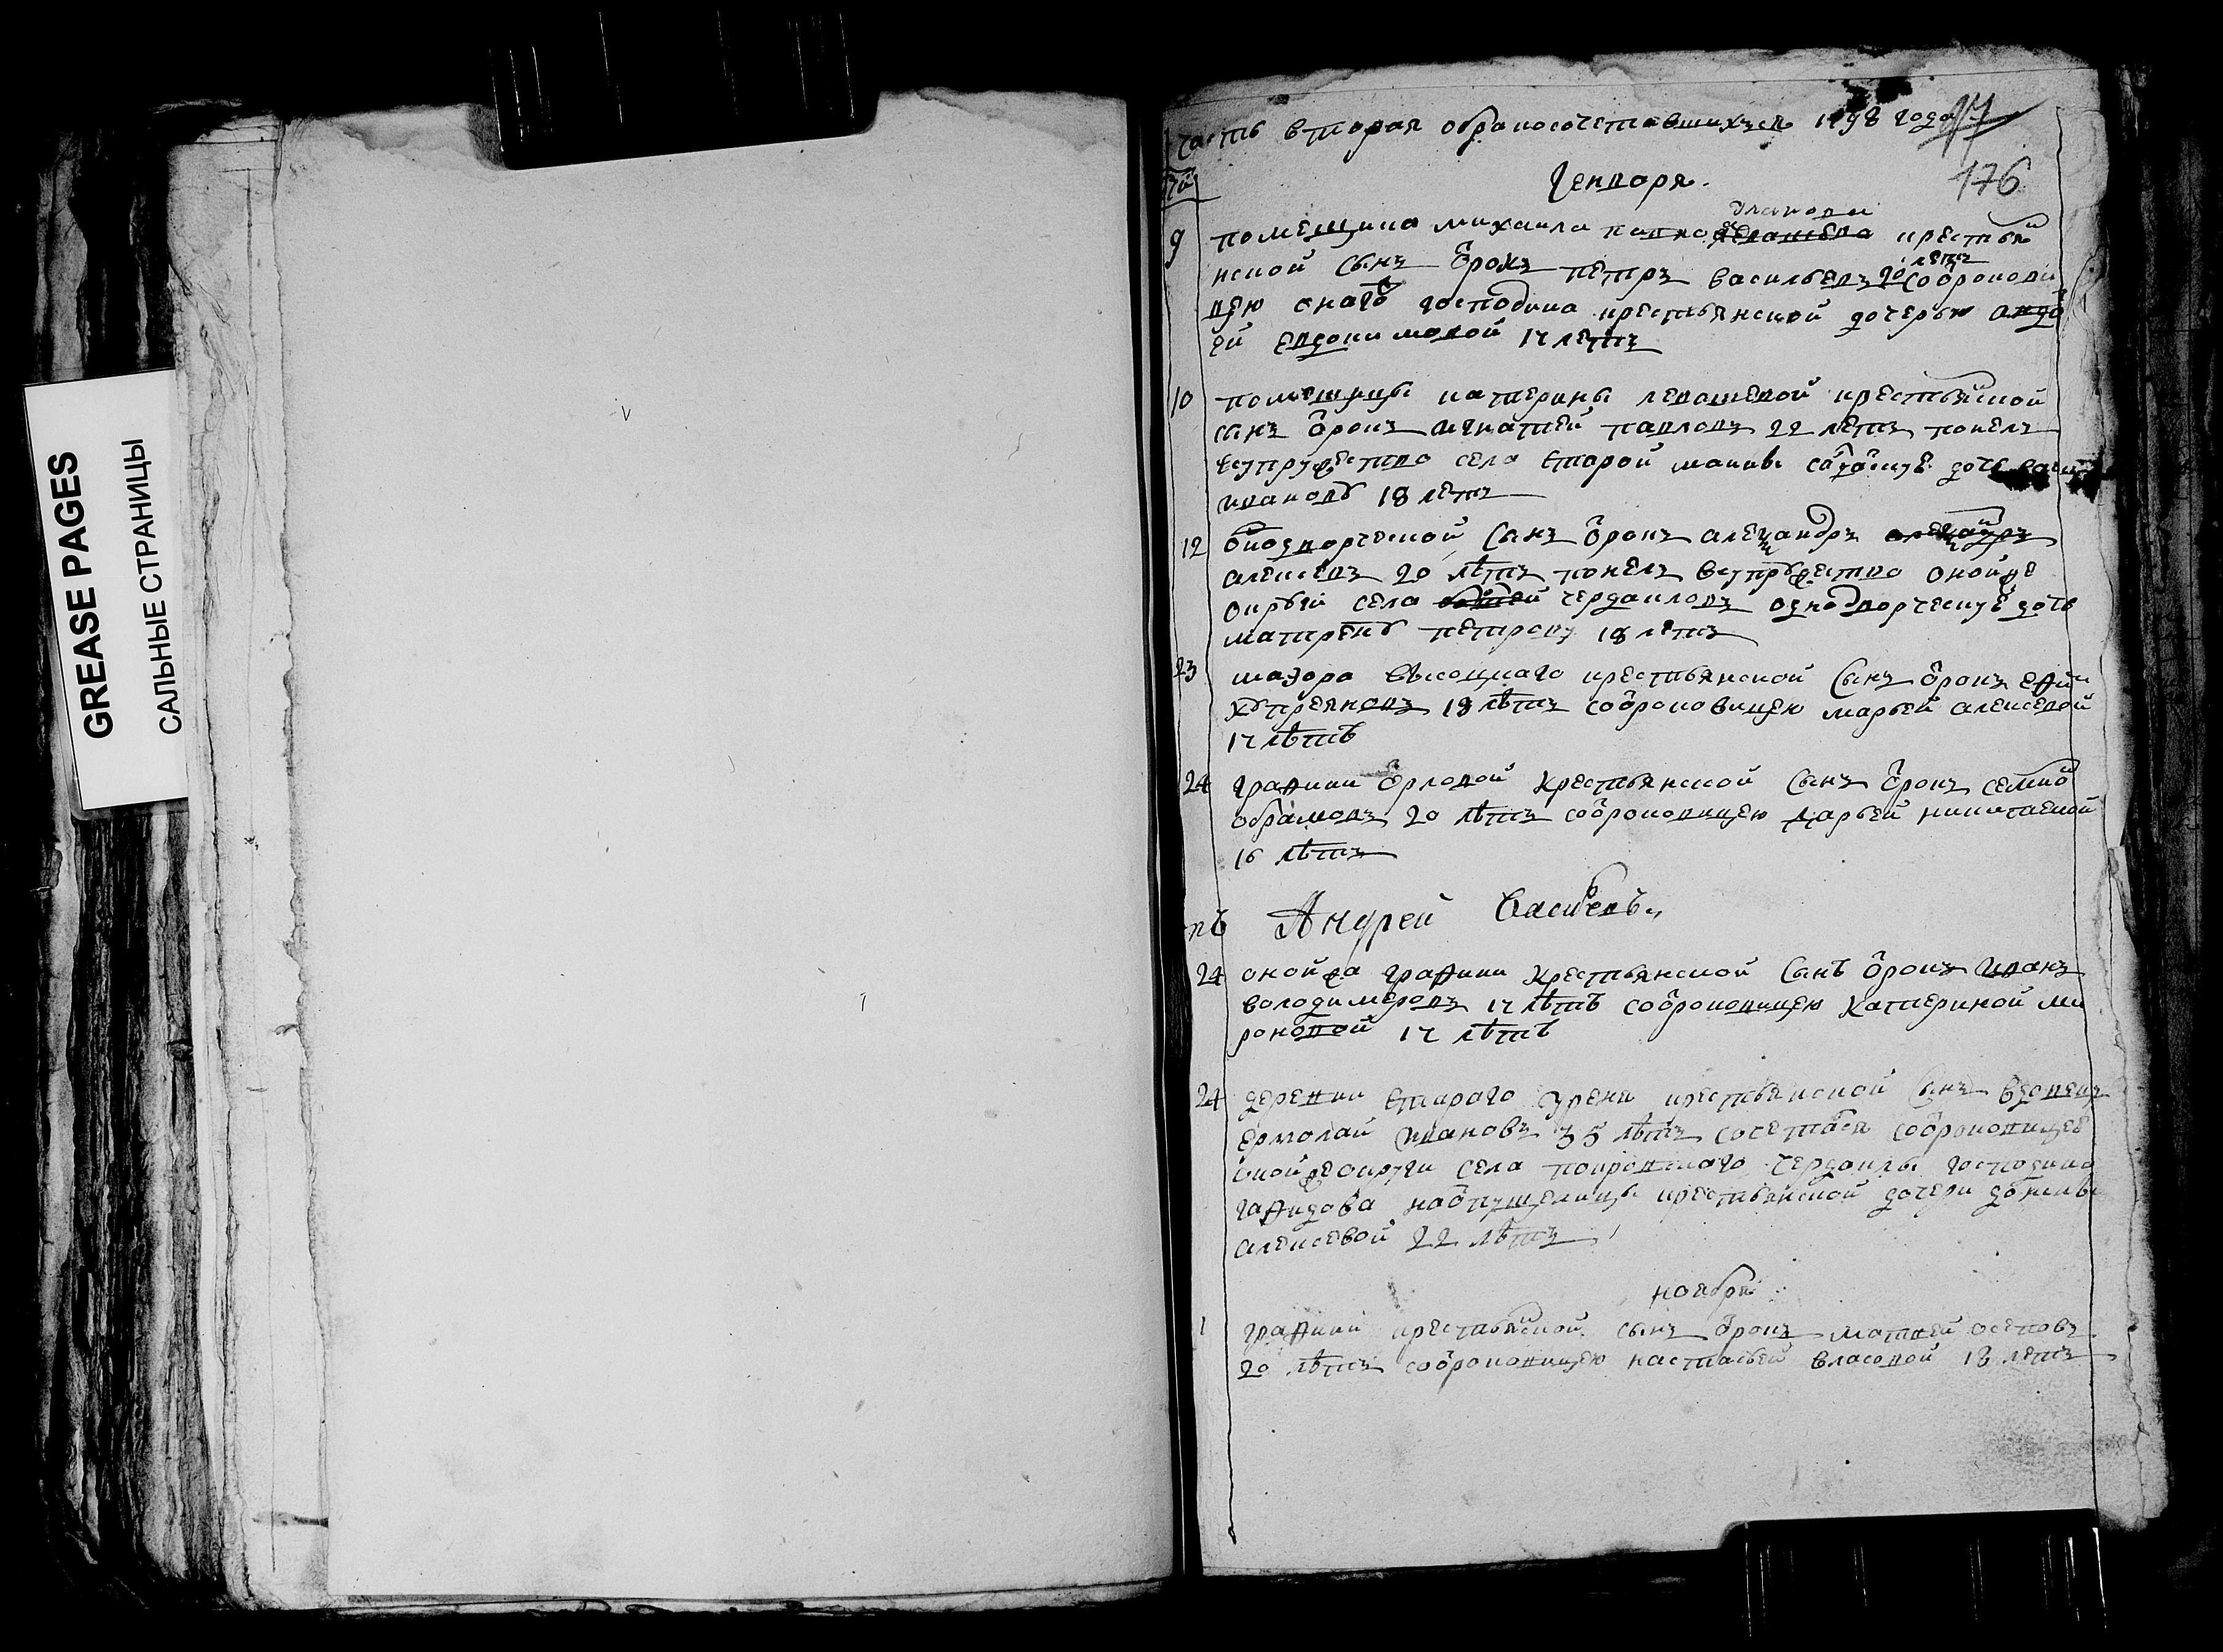 GREASE PAGES
САЛЬНЫЕ СТРАНИЦЫ
часть вторая обраносочетавшихся 1798 года
176
Генваря
9 помещика михаила крестья
нской сынъ отрокъ петръ васильевъ 20 летъ соотрокови
цею онаго господина крестьянской дочерью авдо
ей евдокимовой 17 летъ
10 помещицы катерины левашевой крестьянской
сынъ отрокъ игнатей павловъ 22 летъ понелъ
всупружество села старой маины дочь
иванову 18 летъ
12 однодворческой сынъ отрокъ александръ
алексеевъ 20 лѣтъ понелъ всупружество онойже
округи села чердакловъ однодворческую дочь
матрену петрову 18 летъ
23 маэора высоцкаго крестьянской сынъ отрокъ
купреяновъ 18 лѣтъ соотроковицею марьей алексевой
17 лѣтъ
24 графини орловой крестьянской сынъ отрокъ семио
абрамовъ 20 лѣтъ соотроковицею дарьей никитаевой
16 лѣтъ
Андрей Васильевъ
24 онойжа графини крестьянской сынъ отрокъ иванъ
володимеровъ 17 лѣтъ соотроковицею катериной ми
роновой 17 лѣтъ
24 деревни стараго урени крестьянской сынъ вдовецъ
ермолай ивановъ 35 лѣтъ сочетался соотроковицеё
онойже округи села покровскаго чердаклы господина
крестьянской дочери
алексевой 22 лѣтъ
ноября
1 графини крестьянской сынъ отрокъ матвей осеповъ
20 лѣтъ соотроковицею настасьей власовой 18 летъ